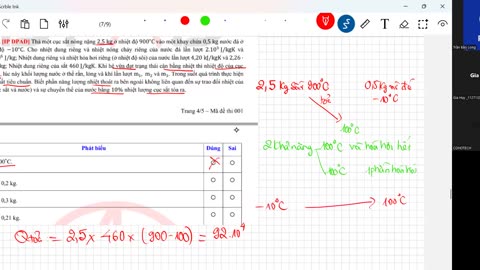 (7/9)
[IP DPAD] Thả một cục sắt nóng nặng 2,5 kg ở nhiệt độ 900°C vào một khay chứa 0,5 kg nước đá ở
độ −10°C. Cho nhiệt dung riêng và nhiệt nóng chảy riêng của nước đá lần lượt 2.10³ J/kgK và
J/kg; Nhiệt dung riêng và nhiệt hóa hơi riêng (ở nhiệt độ sôi) của nước lần lượt 4,20 kJ/kgK và 2,26 ·
kg. Nhiệt dung riêng của sắt 460 J/kgK. Khi hệ vừa đạt trạng thái cân bằng nhiệt thì nhiệt độ của cục
, lúc này khối lượng nước ở thể rắn, lỏng và khí lần lượt m₁, m₂ và m₃. Trong suốt quá trình thực hiện
tiêu chuẩn. Biết phần năng lượng nhiệt thoát ra bên ngoài không liên quan đến sự trao đổi nhiệt của
sắt và nước) và sự chuyển thể của nước bằng 10% nhiệt lượng cục sắt tỏa ra.
Trang 4/5 – Mã đề thi 001
Phát biểu Đúng Sai
00°C.
0,2 kg.
0,3 kg.
0,21 kg.
Qtoả = 2,5 x 460 x (900-100) = 92.10⁴
2,5 kg sắt 900°C 0,5 kg nước đá
toả -10°C
100°C
2 khả năng 100°C và hoá hơi hết
100°C 1 phần hoá hơi
-10°C 100°C